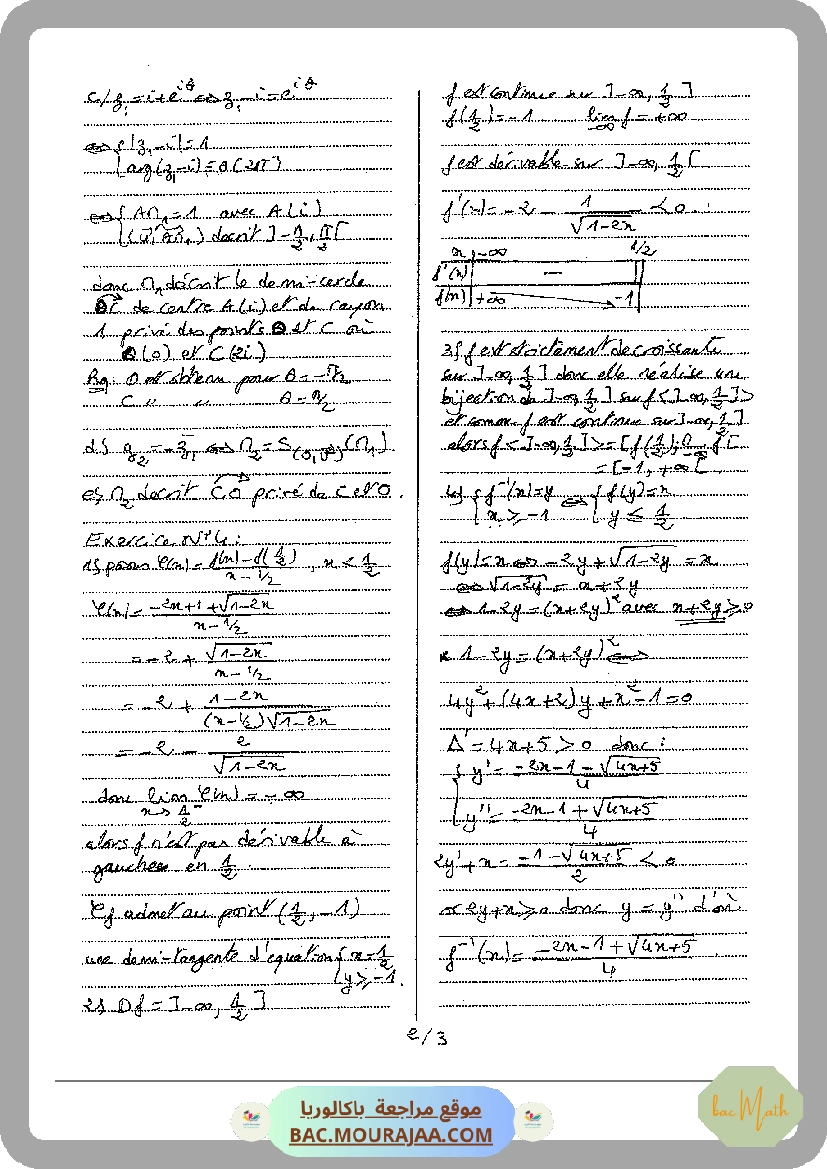 c/ z₁ = i+e^{iθ} ⇔ z₁ - i = e^{iθ}
⇔ { |z₁ - i| = 1
{ arg(z₁ - i) ≡ θ (2π)
⇔ { AM₁ = 1 avec A(i)
{ (u, AM₁) décrit ]-π/2, π/2[
donc M₁ décrit le demi-cercle
OC de centre A(i) et de rayon
1 privé des points O et C où
O(0) et C(2i)
Rq: O est obtenu pour θ = -π/2
C " " θ = π/2
d) z₂ = -z̄₁ ⇔ M₂ = S(O, v)(M₁)
e) M₂ décrit CO privé de C et O.
Exercice N°4:
1) posons φ(x) = (f(x) - f(1/2))/(x - 1/2), x < 1/2
φ(x) = (-2x+1+√(1-2x))/(x - 1/2)
= -2 + √(1-2x)/(x - 1/2)
= -2 + (1-2x)/((x-1/2)√(1-2x))
= -2 - 2/√(1-2x)
donc lim φ(x) = -∞
x→1/2⁻
alors f n'est pas dérivable à
gauche en 1/2.
Cf admet au point (1/2, -1)
une demi-tangente d'équation { x = 1/2
{ y ≥ -1.
2) Df = ]-∞, 1/2]
f est continue sur ]-∞, 1/2]
f(1/2) = -1 lim f = +∞
-∞
f est dérivable sur ]-∞, 1/2[
f'(x) = -2 - 1/√(1-2x) < 0.
x -∞ 1/2
f'(x) -
f(x) +∞ -1
3) f est strictement décroissante
sur ]-∞, 1/2] donc elle réalise une
bijection de ]-∞, 1/2] sur f<]-∞, 1/2]>
et comme f est continue sur ]-∞, 1/2]
alors f<]-∞, 1/2]> = [f(1/2), lim f[
-∞
= [-1, +∞[
4) { f⁻¹(x) = y ⇔ { f(y) = x
{ x ≥ -1 { y ≤ 1/2
f(y) = x ⇔ -2y + √(1-2y) = x
⇔ √(1-2y) = x+2y
⇔ 1-2y = (x+2y)² avec x+2y ≥ 0
* 1-2y = (x+2y)² ⇔
4y² + (4x+2)y + x² - 1 = 0
Δ' = 4x+5 > 0 donc:
{ y' = (-2x-1-√(4x+5))/4
{ y'' = (-2x-1+√(4x+5))/4
2y'+x = (-1-√(4x+5))/2 < 0
or 2y+x ≥ 0 donc y = y'' d'où
f⁻¹(x) = (-2x-1+√(4x+5))/4.
2/3
موقع مراجعة باكالوريا
BAC.MOURAJAA.COM
bac Math